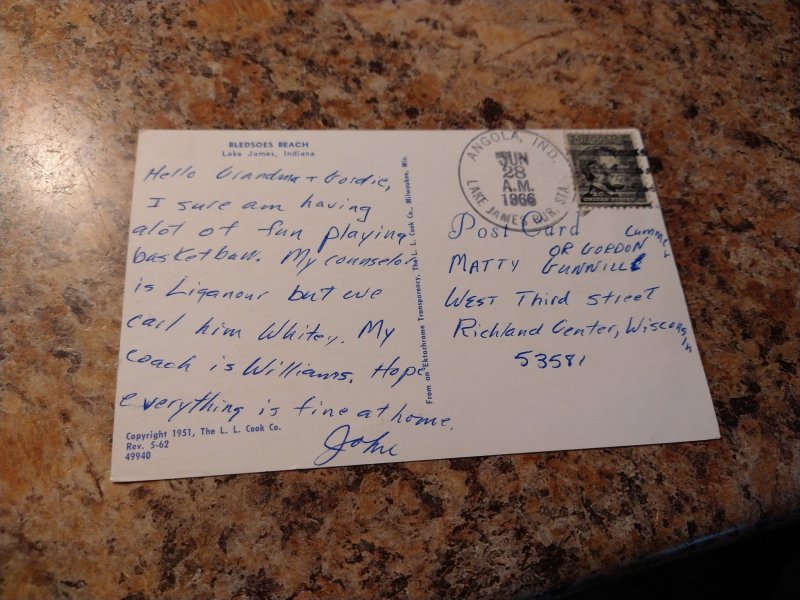 BLEDSOES BEACH
Lake James, Indiana
Hello Grandma + Gordie,
I sure am having
alot of fun playing
basketball. My counselor
is Liganour but we
call him Whitey. My
coach is Williams. Hope
everything is fine at home.
John
Copyright 1951, The L. L. Cook Co.
Rev. 5-62
49940
From an Ektachrome Transparency, The L. L. Cook Co., Milwaukee, Wis.
ANGOLA, IND.
JUN
28
A.M.
1966
LAKE JAMES RUR. STA.
UNITED STATES
Post Card
OR GORDON
MATTY GUNNILL
West Third Street
Richland Center, Wisconsin
53581